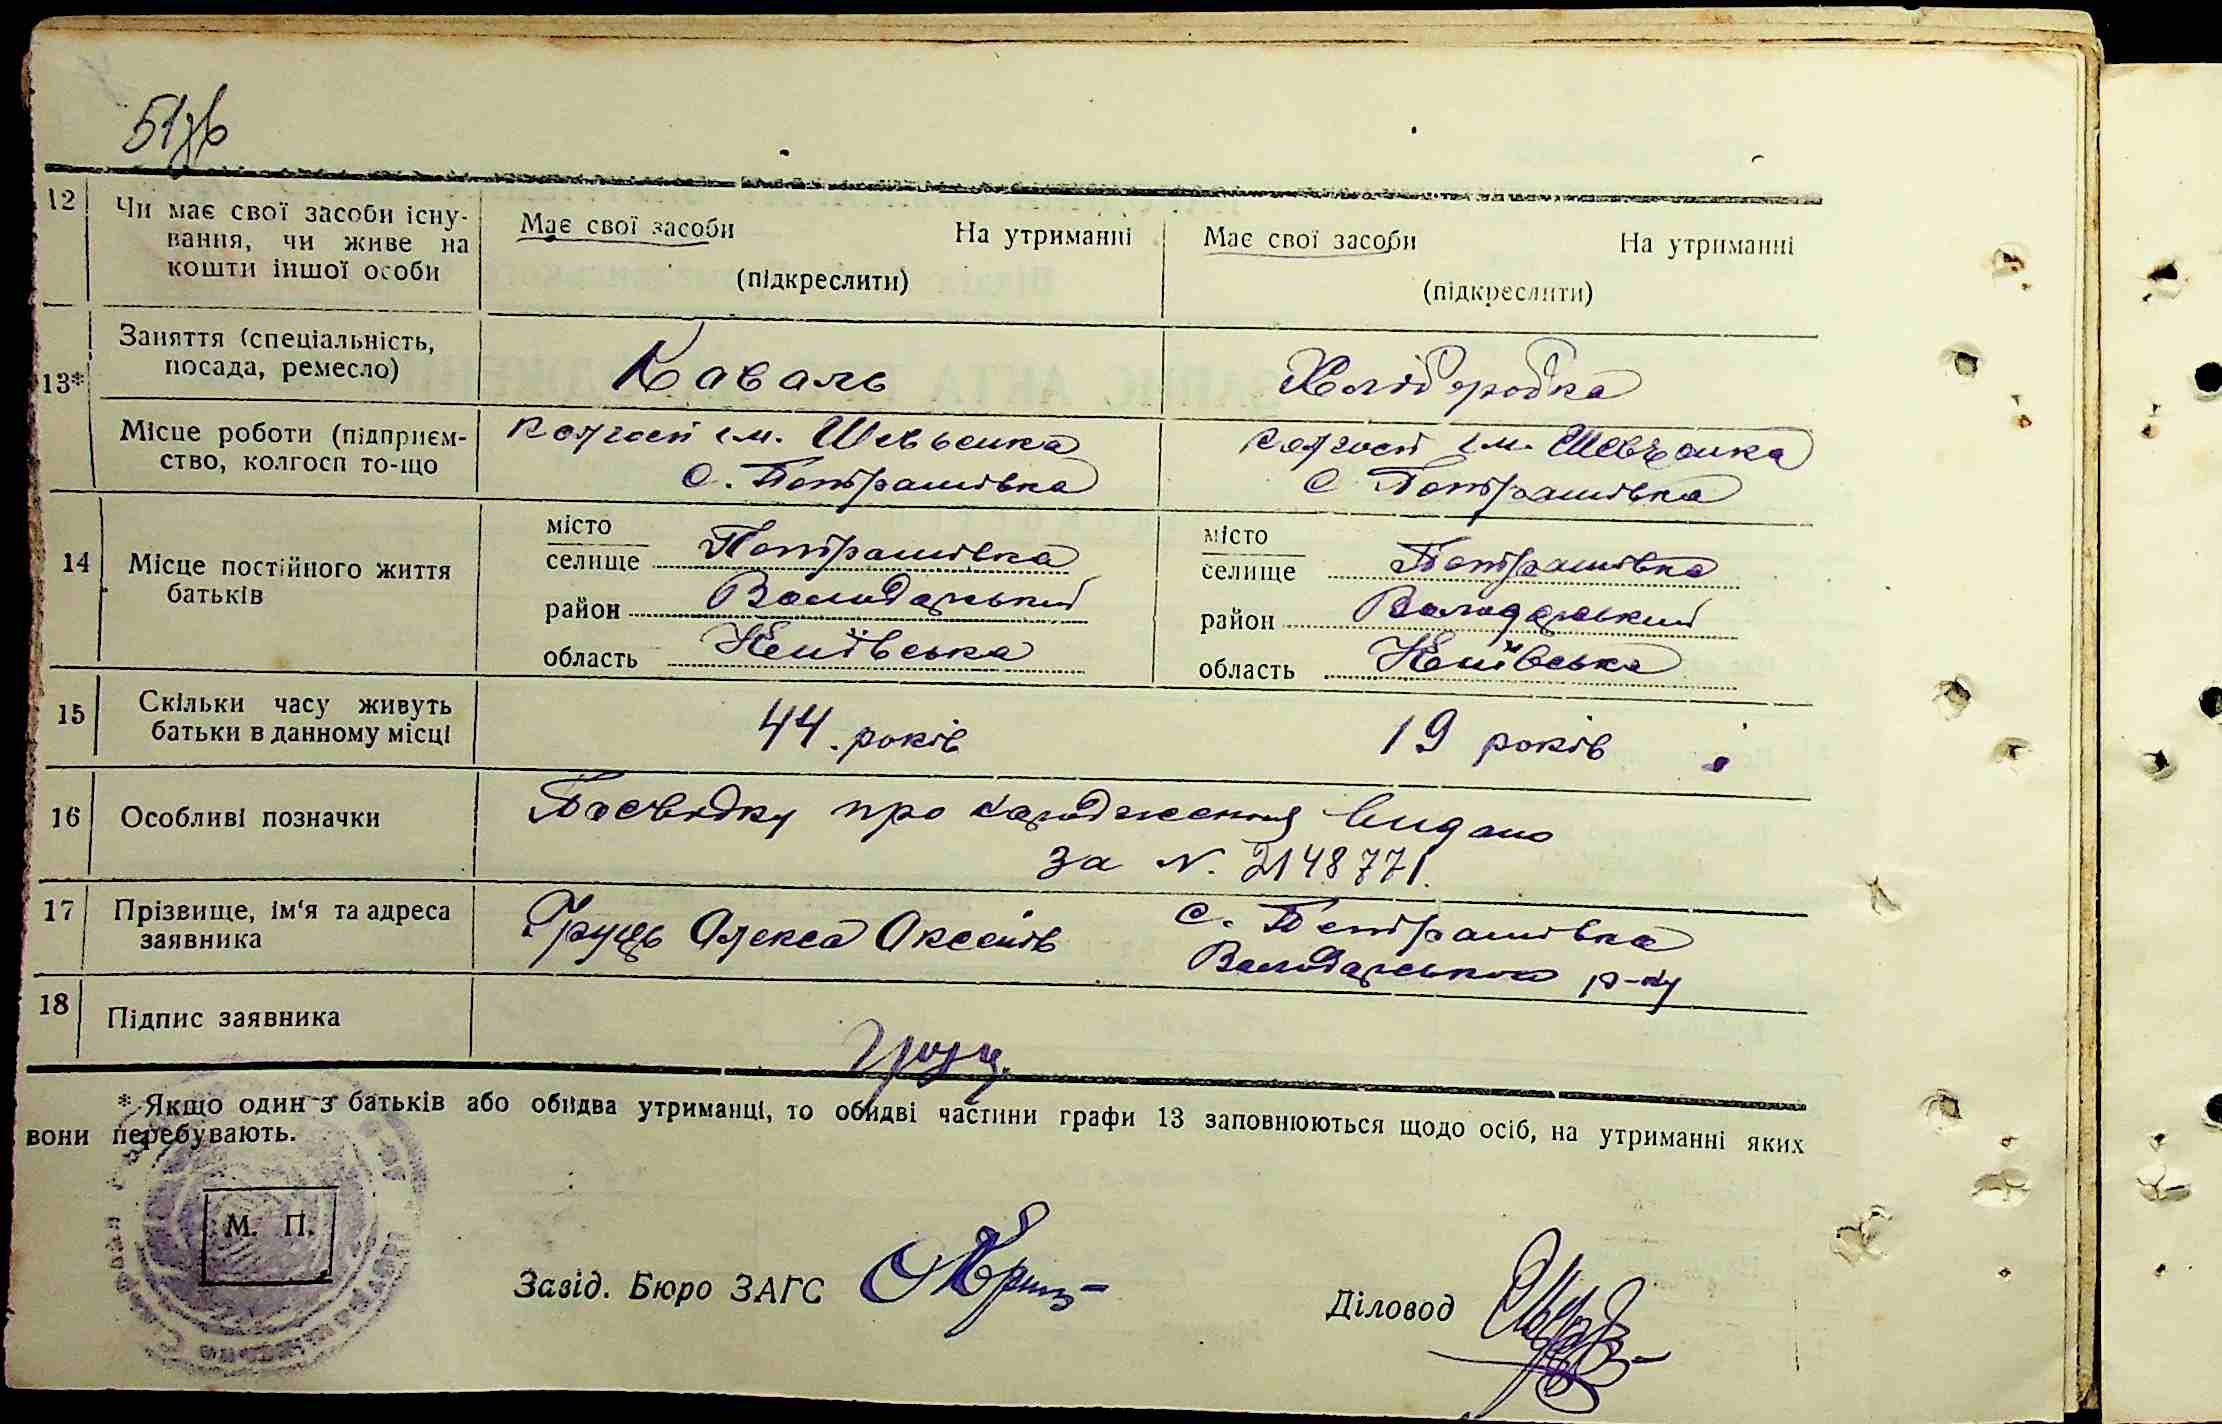 51зв
12 Чи має свої засоби існу-
вання, чи живе на
кошти іншої особи
Має свої засоби На утриманні
(підкреслити)
Має свої засоби На утриманні
(підкреслити)
13* Заняття (спеціальність,
посада, ремесло)
Коваль
Хліборобка
Місце роботи (підприєм-
ство, колгосп то-що
колгосп ім. Шевченка
с. Петрашівка
колгосп ім. Шевченка
с Петрашівка
14 Місце постійного життя
батьків
місто
селище Петрашівка
район Володарський
область Київська
місто
селище Петрашівка
район Володарський
область Київська
15 Скільки часу живуть
батьки в данному місці
44. років
19 років
16 Особливі позначки
Посвідку про народження видано
за N. 2148771.
17 Прізвище, ім'я та адреса
заявника
Грущь Олекса Оксентів
с. Петрашівка
Володарського р-ну
18 Підпис заявника
Грущ.
* Якщо один з батьків або обидва утриманці, то обидві частини графи 13 заповнюються щодо осіб, на утриманні яких
вони перебувають.
М. П.
Завід. Бюро ЗАГС
Діловод